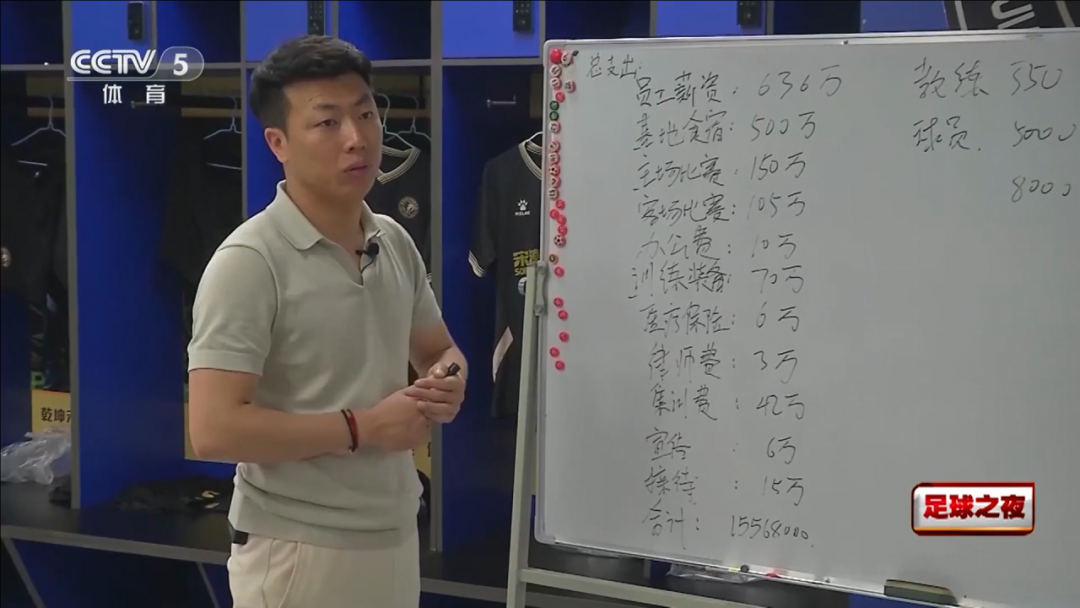 CCTV 5
体育
总支出:
员工薪资: 636万
基地食宿: 500万
主场比赛: 150万
客场比赛: 105万
办公费: 10万
训练装备: 70万
医疗保险: 6万
律师费: 3万
集训费: 42万
宣传 6万
接待: 15万
合计: 15568000.
教练 350
球员. 5000
8000
KELME
宋河
乾坤
足球之夜